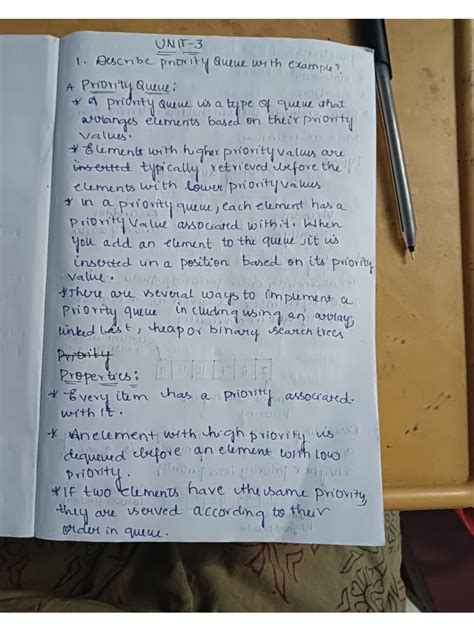 UNIT-3
1. Describe priority Queue with example?
A Priority Queue:
* A priority queue is a type of queue that
arranges elements based on their priority
values.
* Elements with higher priority values are
inserted typically retrieved before the
elements with lower priority values
* in a priority queue, each element has a
priority value associated with it. When
you add an element to the queue, it is
inserted in a position based on its priority
value.
* There are several ways to implement a
priority queue including using an array,
linked list, heap or binary search trees
Priority
Properties:
* Every item has a priority associated
with it.
* An element with high priority is
dequeued before an element with low
priority.
* IF two elements have the same priority,
they are served according to their
order in queue.